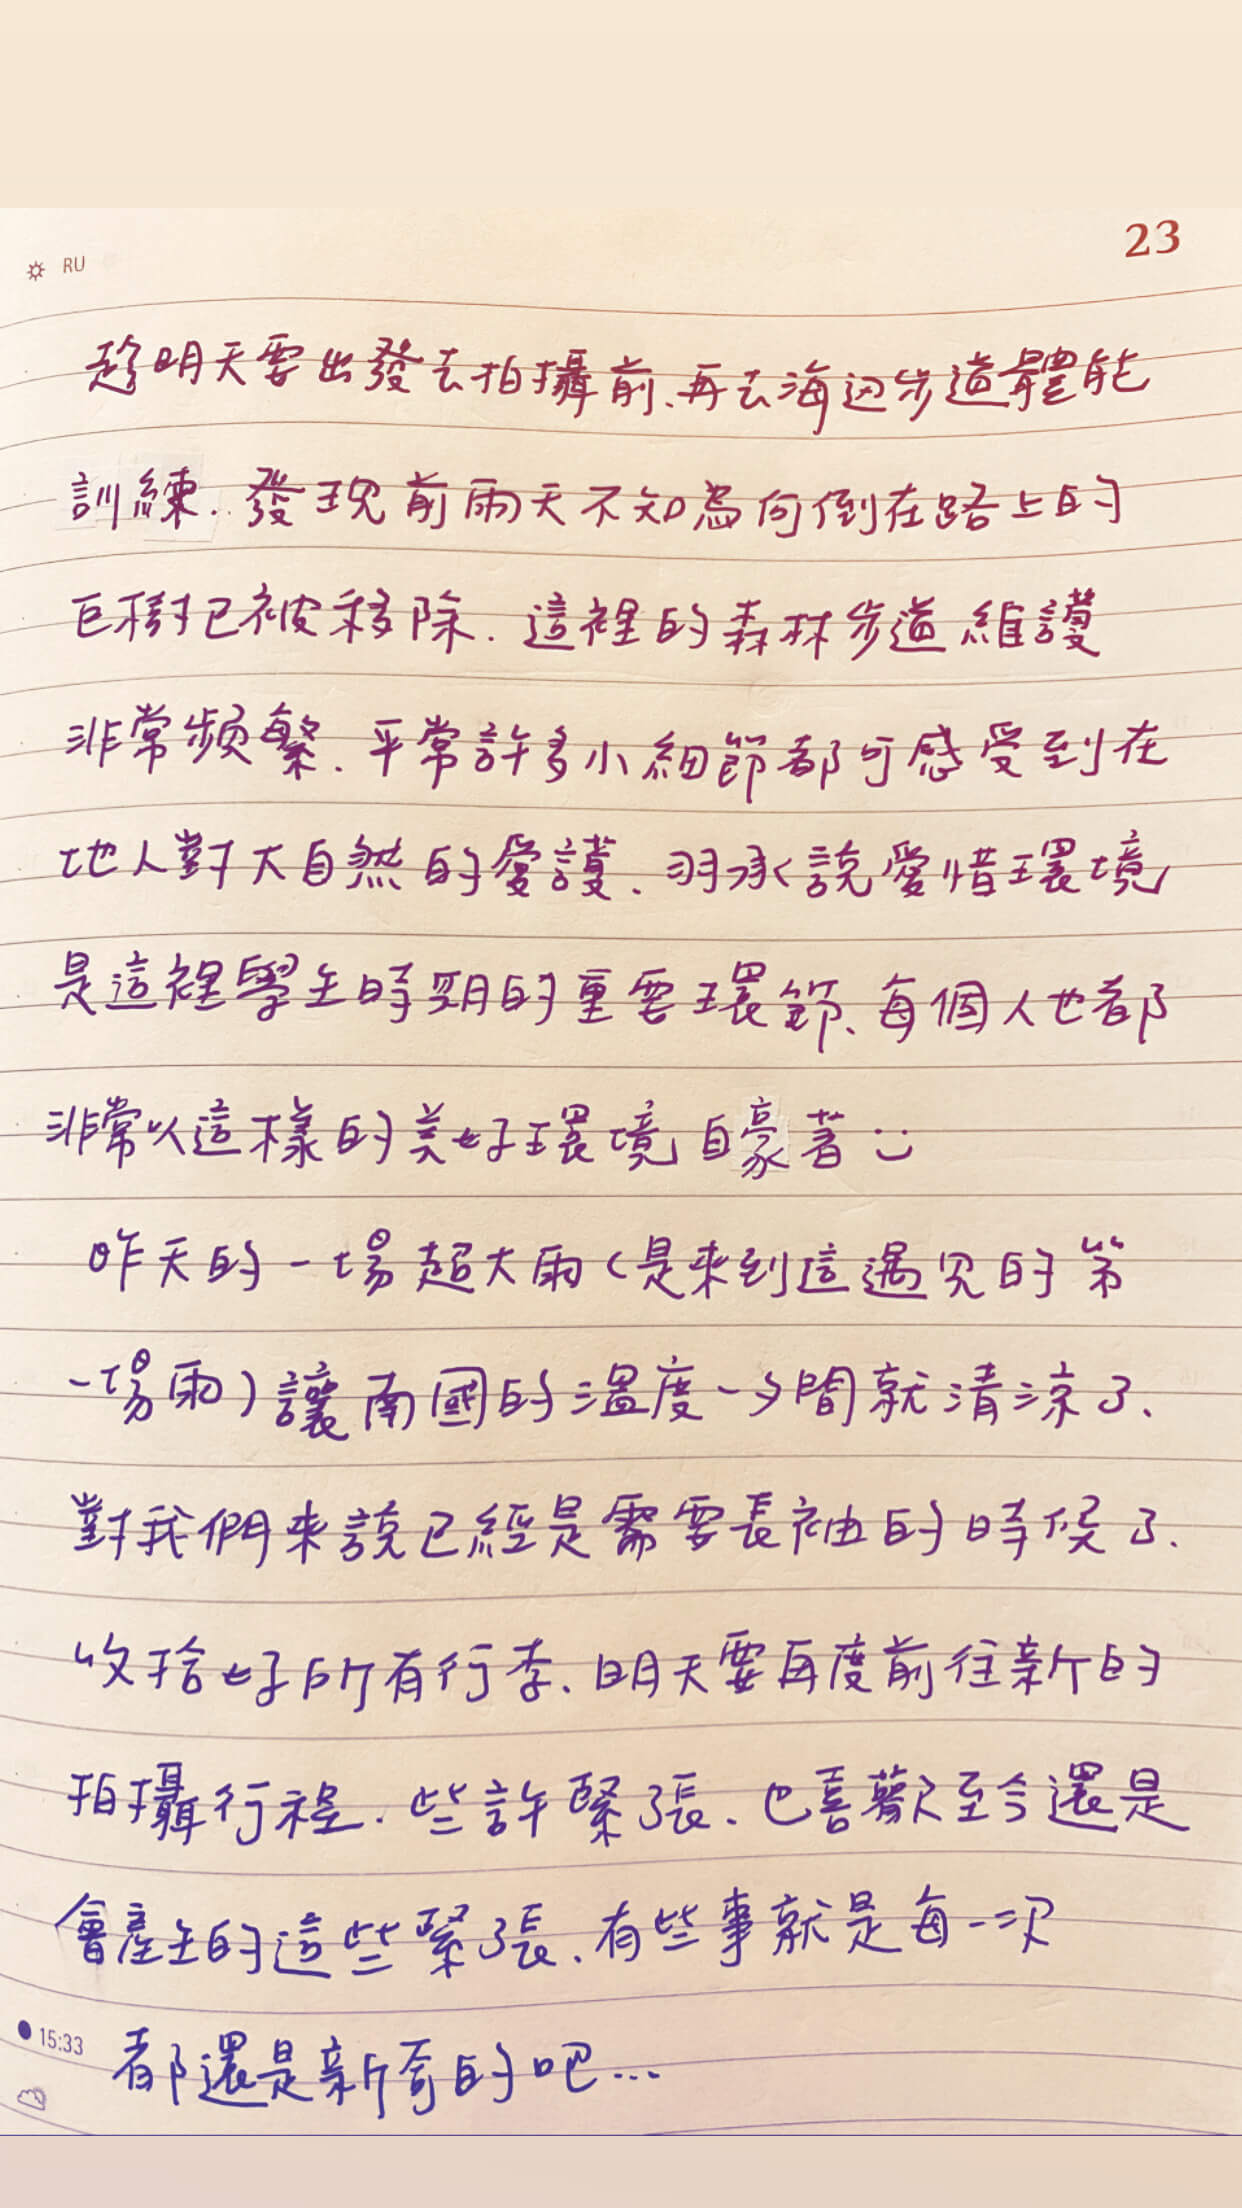 23
RU
趁明天要出發去拍攝前、再去海边步道體能
訓練. 發現前兩天不知為何倒在路上的
巨樹已被移除. 這裡的森林步道維護
非常頻繁. 平常許多小細節都可感受到在
地人對大自然的愛護. 羽承說愛惜環境
是這裡學生時期的重要環節、每個人也都
非常以這樣的美好環境自豪著
昨天的一場超大雨(是來到這遇見的第
一場雨)讓南國的溫度一夕間就清涼了、
對我們來說已經是需要長袖的時候了.
收拾好所有行李、明天要再度前往新的
拍攝行程. 些許緊張、也喜歡至今還是
會產生的這些緊張、有些事就是每一次
15:33
都還是新奇的吧...